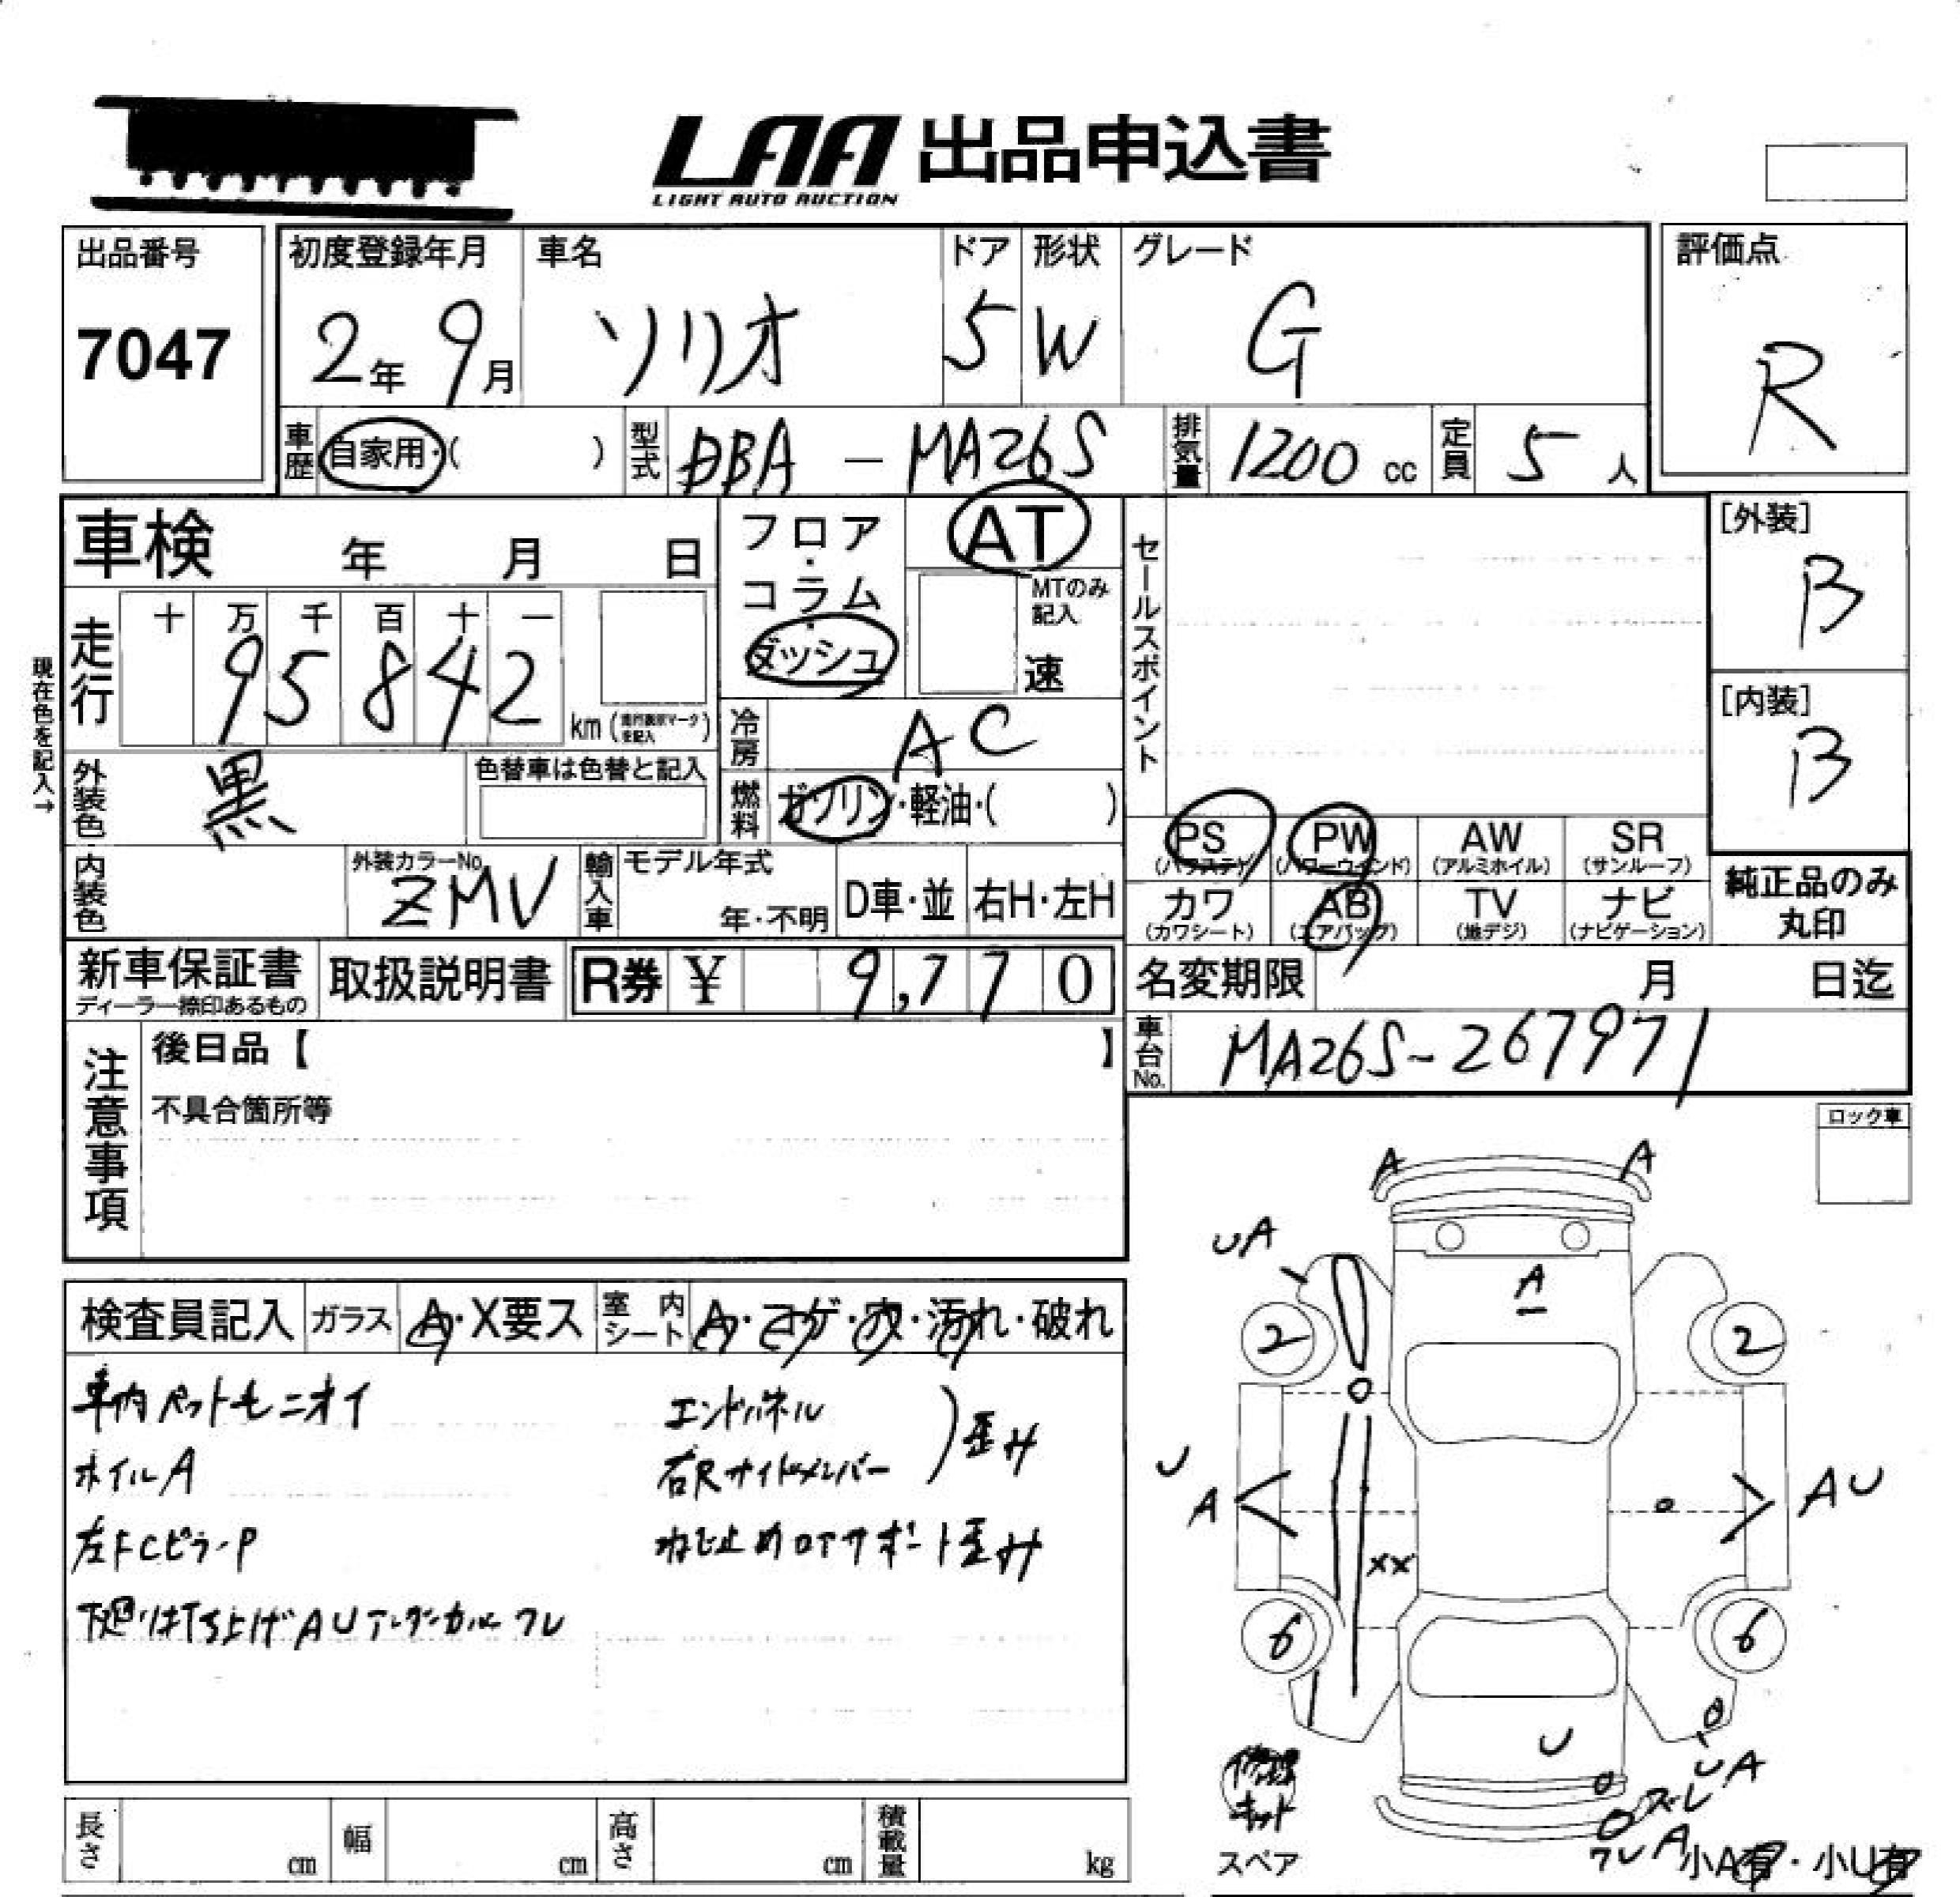 LAA 出品申込書
LIGHT AUTO AUCTION
出品番号
7047
初度登録年月
2年 9月
車名
ソリオ
ドア
5
形状
W
グレード
G
評価点
R
車歴
自家用・( )
型式
DBA － MA26S
排気量
1200 cc
定員
5 人
車検 年 月 日
フロア・コラム・ダッシュ
AT
MTのみ記入
速
セールスポイント
[外装]
B
[内装]
B
現在色を記入→
走行
十 万 千 百 十 一
9 5 8 4 2
km (走行表示マークを記入)
冷房
AC
外装色
黒
色替車は色替と記入
燃料
ガソリン・軽油・( )
PS
(パワステ)
PW
(パワーウィンド)
AW
(アルミホイル)
SR
(サンルーフ)
カワ
(カワシート)
AB
(エアバッグ)
TV
(地デジ)
ナビ
(ナビゲーション)
純正品のみ
丸印
内装色
外装カラーNo.
ZMV
輸入車
モデル年式
年・不明
D車・並
右H・左H
新車保証書
ディーラー捺印あるもの
取扱説明書
R券 ¥ 9,770
名変期限 月 日迄
車台No.
MA26S-267971
注意事項
後日品【 】
不具合箇所等
ロック車
検査員記入 ガラス A・X要ス 室内シート A・コゲ・穴・汚れ・破れ
車内ペット毛ニオイ
ホイルA
左FCピラーP
下廻り
AU
エンドパネル
右Rサイドメンバー
歪み
ねじ止めロアサポート歪み
A A
UA
A
2 2
U
A
AU
XX
6 6
U
UA
ズレ
ワレ A
修理キット
スペア
小A有・小U有
長さ cm
幅 cm
高さ cm
積載量 kg